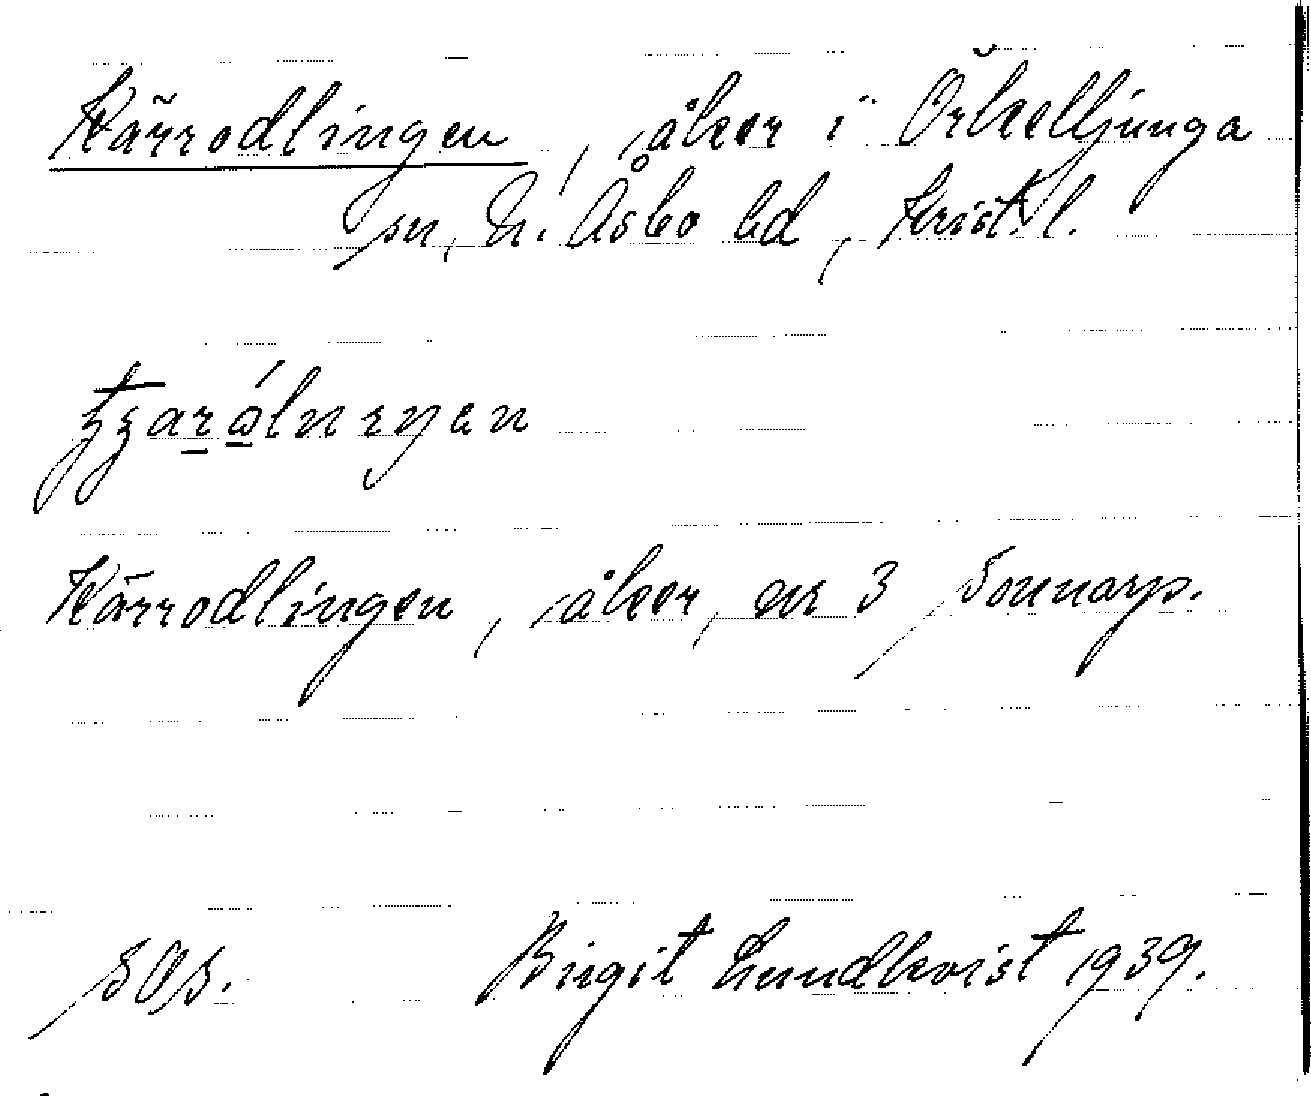 Kärrodlingen, åker i Örkelljunga
sn, N. Åsbo hd, Krist. l.
Kärrodlingen, åker, nr 3 Sonnarp.
SOS. Birgit Lundkvist 1939.